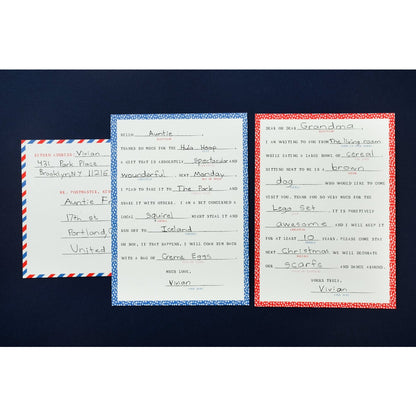 RETURN ADDRESS: Vivian
431 Park Place
Brooklyn, NY 11216
MR. POSTMASTER,
Auntie F
17th st
Portland,
United
HELLO Auntie,
THANKS SO MUCH FOR THE Hula Hoop,
A GIFT THAT IS ABSOLUTELY Spectacular AND
wounderful. NEXT Monday,
I PLAN TO TAKE IT TO The Park AND
SHARE IT WITH OTHERS. I AM A BIT CONCERNED A
LOCAL Squirel MIGHT STEAL IT AND
RUN OFF TO Iceland.
OH BOY, IF THAT HAPPENS, I WILL COAX HIM BACK
WITH A BAG OF Creme Eggs.
MUCH LOVE,
Vivian
DEAR OH DEAR Grandma,
I AM WRITING TO YOU FROM The living room
WHILE EATING A LARGE BOWL OF sereal.
SITTING NEXT TO ME IS A brown
dog WHO WOULD LIKE TO COME
VISIT YOU. THANK YOU SO VERY MUCH FOR THE
Lego Set. IT IS POSITIVELY
awesome AND I WILL KEEP IT
FOR AT LEAST 10 YEARS. PLEASE COME STAY
NEXT Christmas. WE WILL DECORATE
OUR scarfs AND DANCE AROUND.
YOURS TRULY,
Vivian